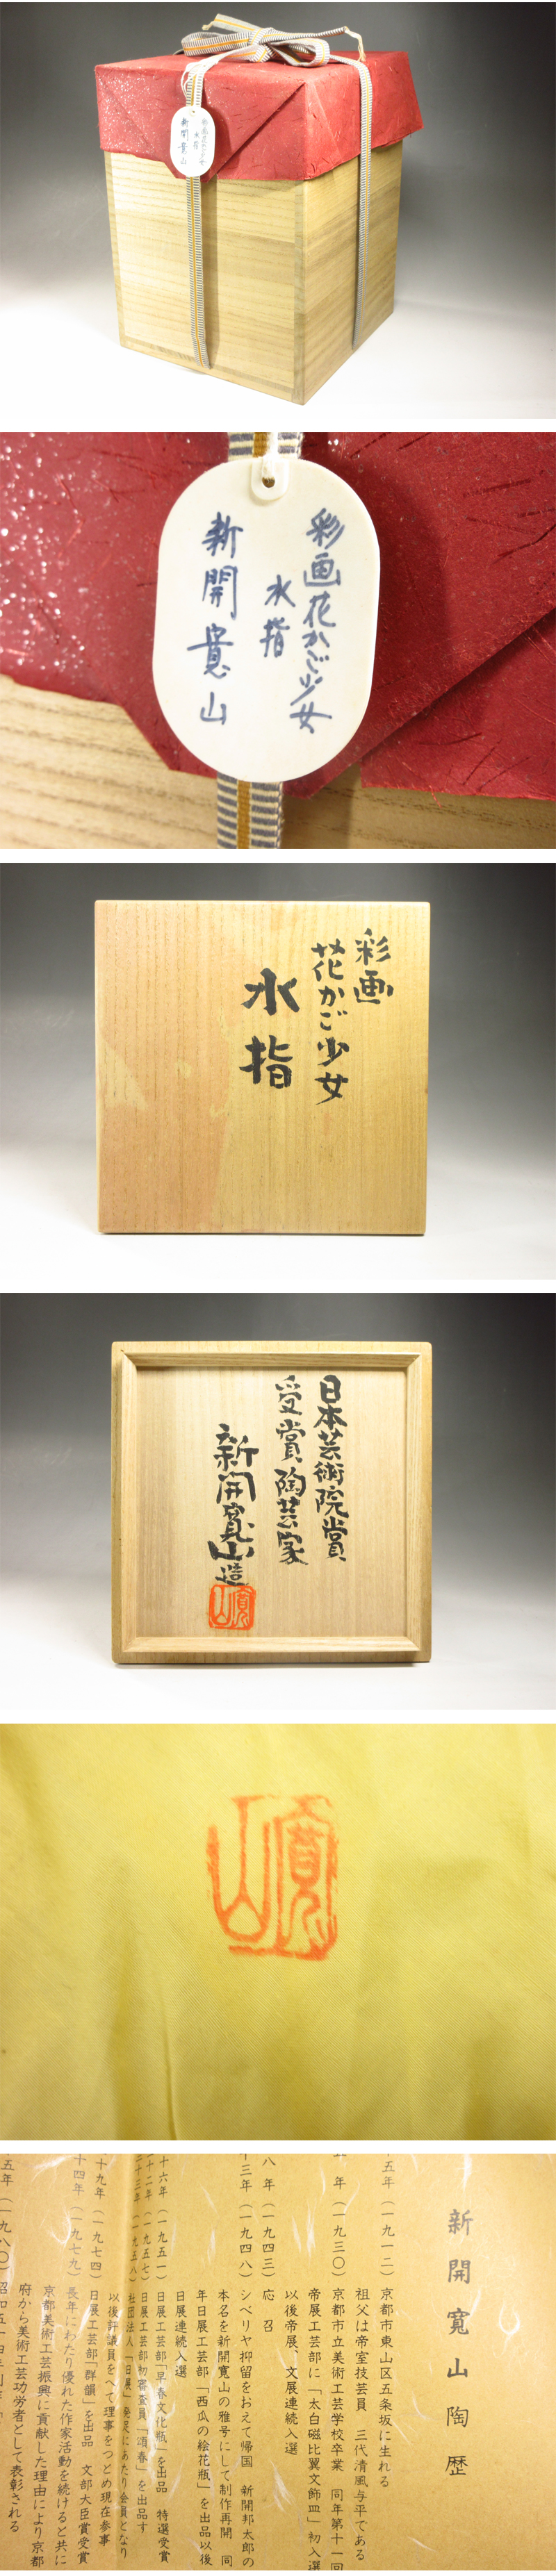 彩画花かご少女
水指
新開寛山
彩画花かご少女
水指
新開寛山
彩画
花かご少女
水指
日本芸術院賞
受賞陶芸家
新開寛山造
寛山
寛山
新開寛山陶歴
五年（一九一二）京都市東山区五条坂に生れる
祖父は帝室技芸員　三代清風与平である
年（一九三〇）京都市立美術工芸学校卒業　同年第十一回
帝展工芸部に「太白磁比翼文飾皿」初入選
以後帝展、文展連続入選
八年（一九四三）応召
十三年（一九四八）シベリヤ抑留をおえて帰国　新開邦太郎の
本名を新開寛山の雅号にして制作再開　同
年日展工芸部「西瓜の絵花瓶」を出品以後
日展連続入選
十六年（一九五一）日展工芸部「早春文化瓶」を出品　特選受賞
十二年（一九五七）日展工芸部初審査員「頌春」を出品す
十三年（一九五八）社団法人「日展」発足にあたり会員となり
以後評議員をへて理事をつとめ現在参事
十九年（一九七四）日展工芸部「群韻」を出品　文部大臣賞受賞
十四年（一九七九）長年にわたり優れた作家活動を続けると共に
京都美術工芸振興に貢献した理由により京都
府から美術工芸功労者として表彰される
五年（一九八〇）昭和五十四年